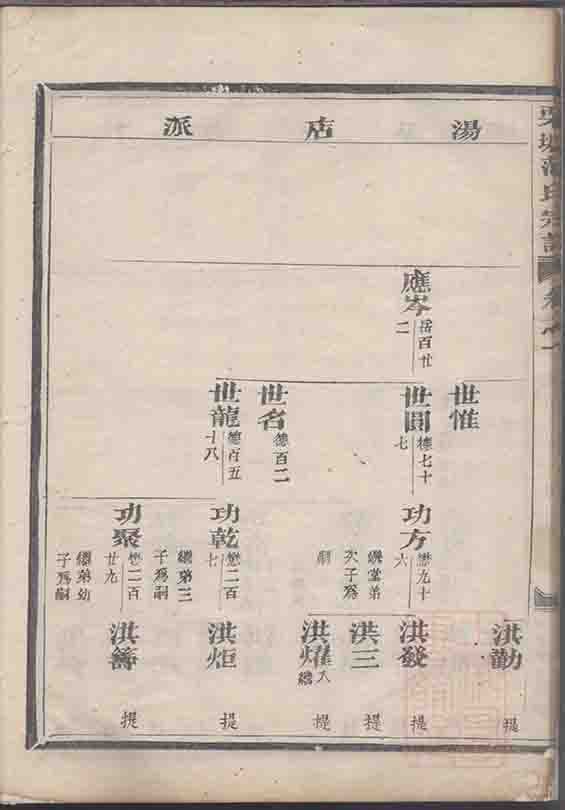 湯店派
應岑
岳百廿
二
世惟
世圓
德七十
七
世名
德百二
世龍
德百五
十八
功方
懋九十
六
繼堂弟
次子為
嗣
功乾
懋二百
七
繼弟三
子為嗣
功聚
懋二百
廿九
繼弟幼
子為嗣
洪勸
提
洪發
提
洪三
提
洪燿
提
洪炬
提
洪籌
提
氏宗譜